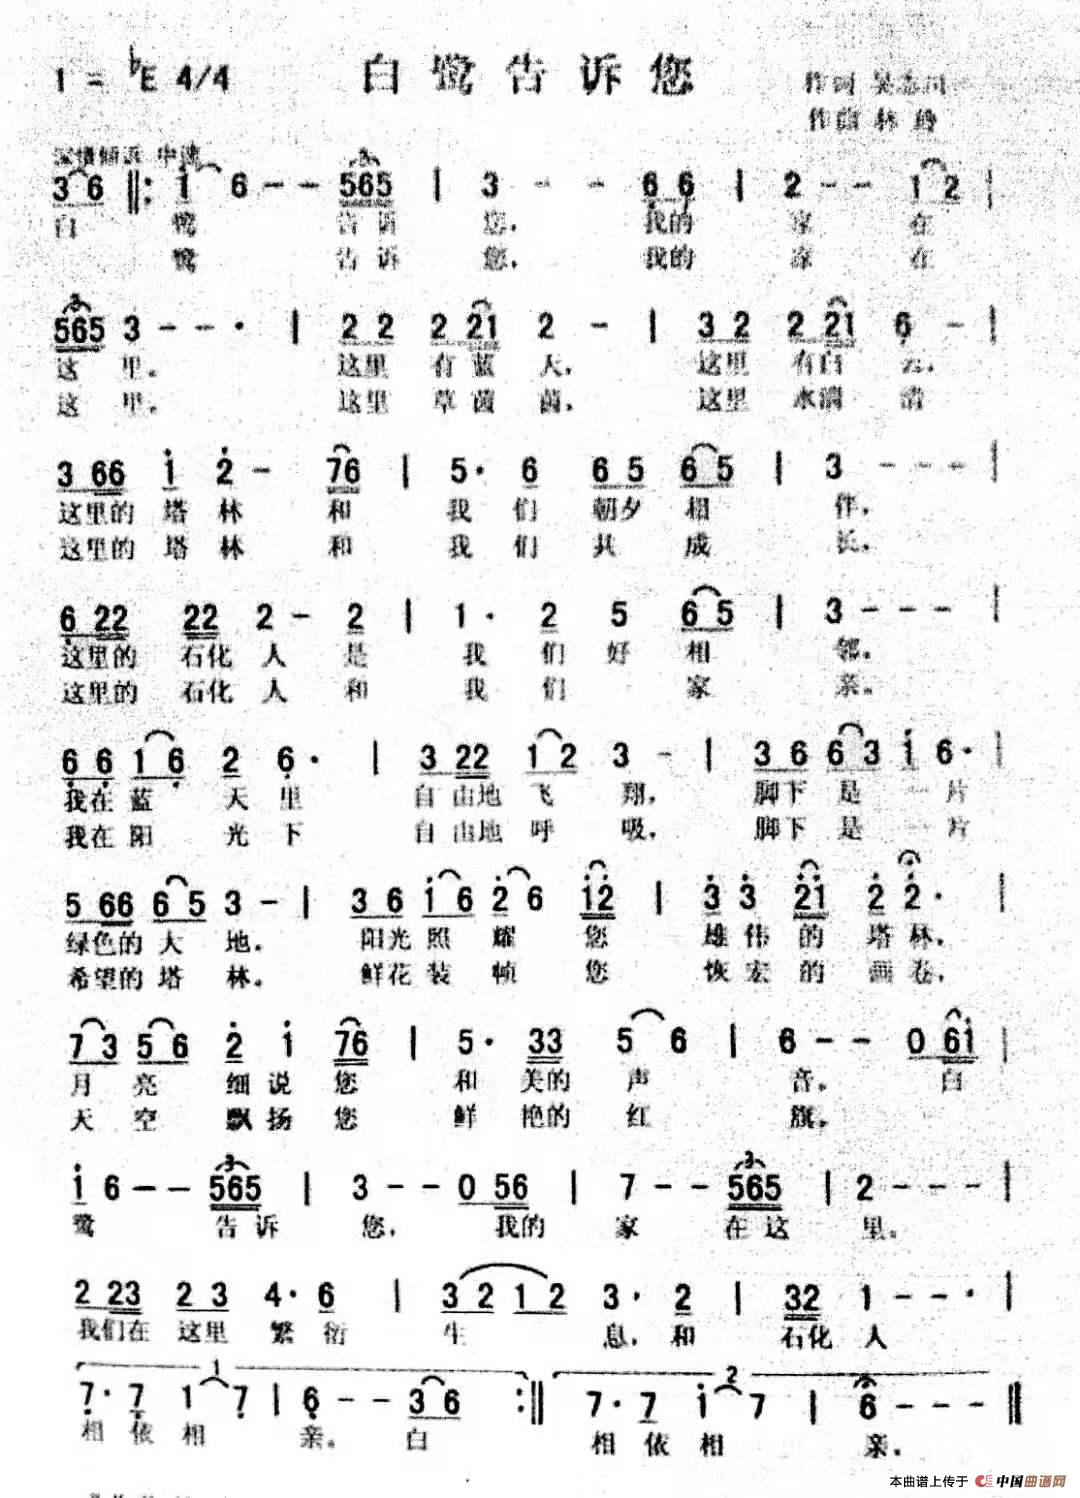 1 = ♭E 4/4 白鹭告诉您
作词
作曲 林
3 6 ‖: i 6 - - 565 | 3 - - 6 6 | 2 - - 1 2 |
白 鹭 告诉 您, 我的 家 在
鹭 告诉 您, 我的 家 在
565 3 - - · | 2 2 2 21 2 - | 3 2 2 21 6 - |
这 里。 这里 有 蓝 天, 这里 有白 云,
这 里。 这里 草 茵 茵, 这里 水 清
3 66 i 2 - 76 | 5 · 6 6 5 6 5 | 3 - - - |
这里的 塔 林 和 我 们 朝夕 相 伴,
这里的 塔 林 和 我 们 共 成 长,
6 22 22 2 - 2 | 1 · 2 5 6 5 | 3 - - - |
这里的 石化 人 是 我 们 好 相 邻。
这里的 石化 人 和 我 们 家 亲。
6 6 1 6 2 6 · | 3 22 1 2 3 - | 3 6 6 3 i 6 ·
我在 蓝 天 里 自由地 飞 翔, 脚下 是 一 片
我在 阳 光 下 自由地 呼 吸, 脚下 是 一 片
5 66 6 5 3 - | 3 6 i 6 2 6 i2 | 3 3 2i 2 2 · |
绿色的 大 地。 阳光 照 耀 您 雄 伟 的 塔 林,
希望的 塔 林。 鲜花 装 帧 您 恢 宏 的 画 卷,
7 3 5 6 2 i 76 | 5 · 33 5 6 | 6 - - 0 6i |
月 亮 细 说 您 和 美的 声 音。 白
天 空 飘 扬 您 鲜 艳的 红 旗。
i 6 - - 565 | 3 - - 0 56 | 7 - - 565 | 2 - - - |
鹭 告诉 您, 我的 家 在 这 里。
2 23 2 3 4 · 6 | 3 2 1 2 3 · 2 | 32 1 - - · |
我们在 这里 繁 衍 生 息, 和 石化 人
1 2
7 · 7 1 7 | 6 - - 3 6 :‖ 7 · 7 i 7 | 6 - - - ‖
相 依 相 亲。 白 相 依 相 亲。
本曲谱上传于 中国曲谱网